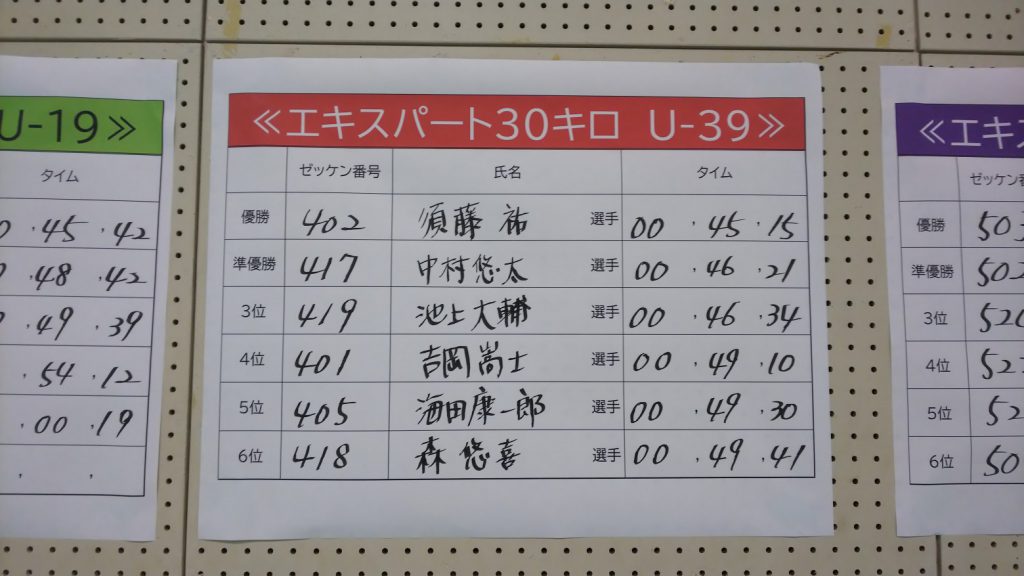 U-19≫
タイム
0 . 45 . 42
0 . 48 . 42
0 . 49 . 39
. 54 . 12
. 00 . 19
. .
≪エキスパート30キロ U-39≫
ゼッケン番号 氏名 タイム
優勝 402 須藤 祐 選手 00 . 45 . 15
準優勝 417 中村悠太 選手 00 . 46 . 21
3位 419 池上大輔 選手 00 . 46 . 34
4位 401 吉岡嵩士 選手 00 . 49 . 10
5位 405 海田康一郎 選手 00 . 49 . 30
6位 418 森 悠喜 選手 00 . 49 . 41
≪エキ
ゼッケン番
優勝 503
準優勝 502
3位 520
4位 52
5位 52
6位 50